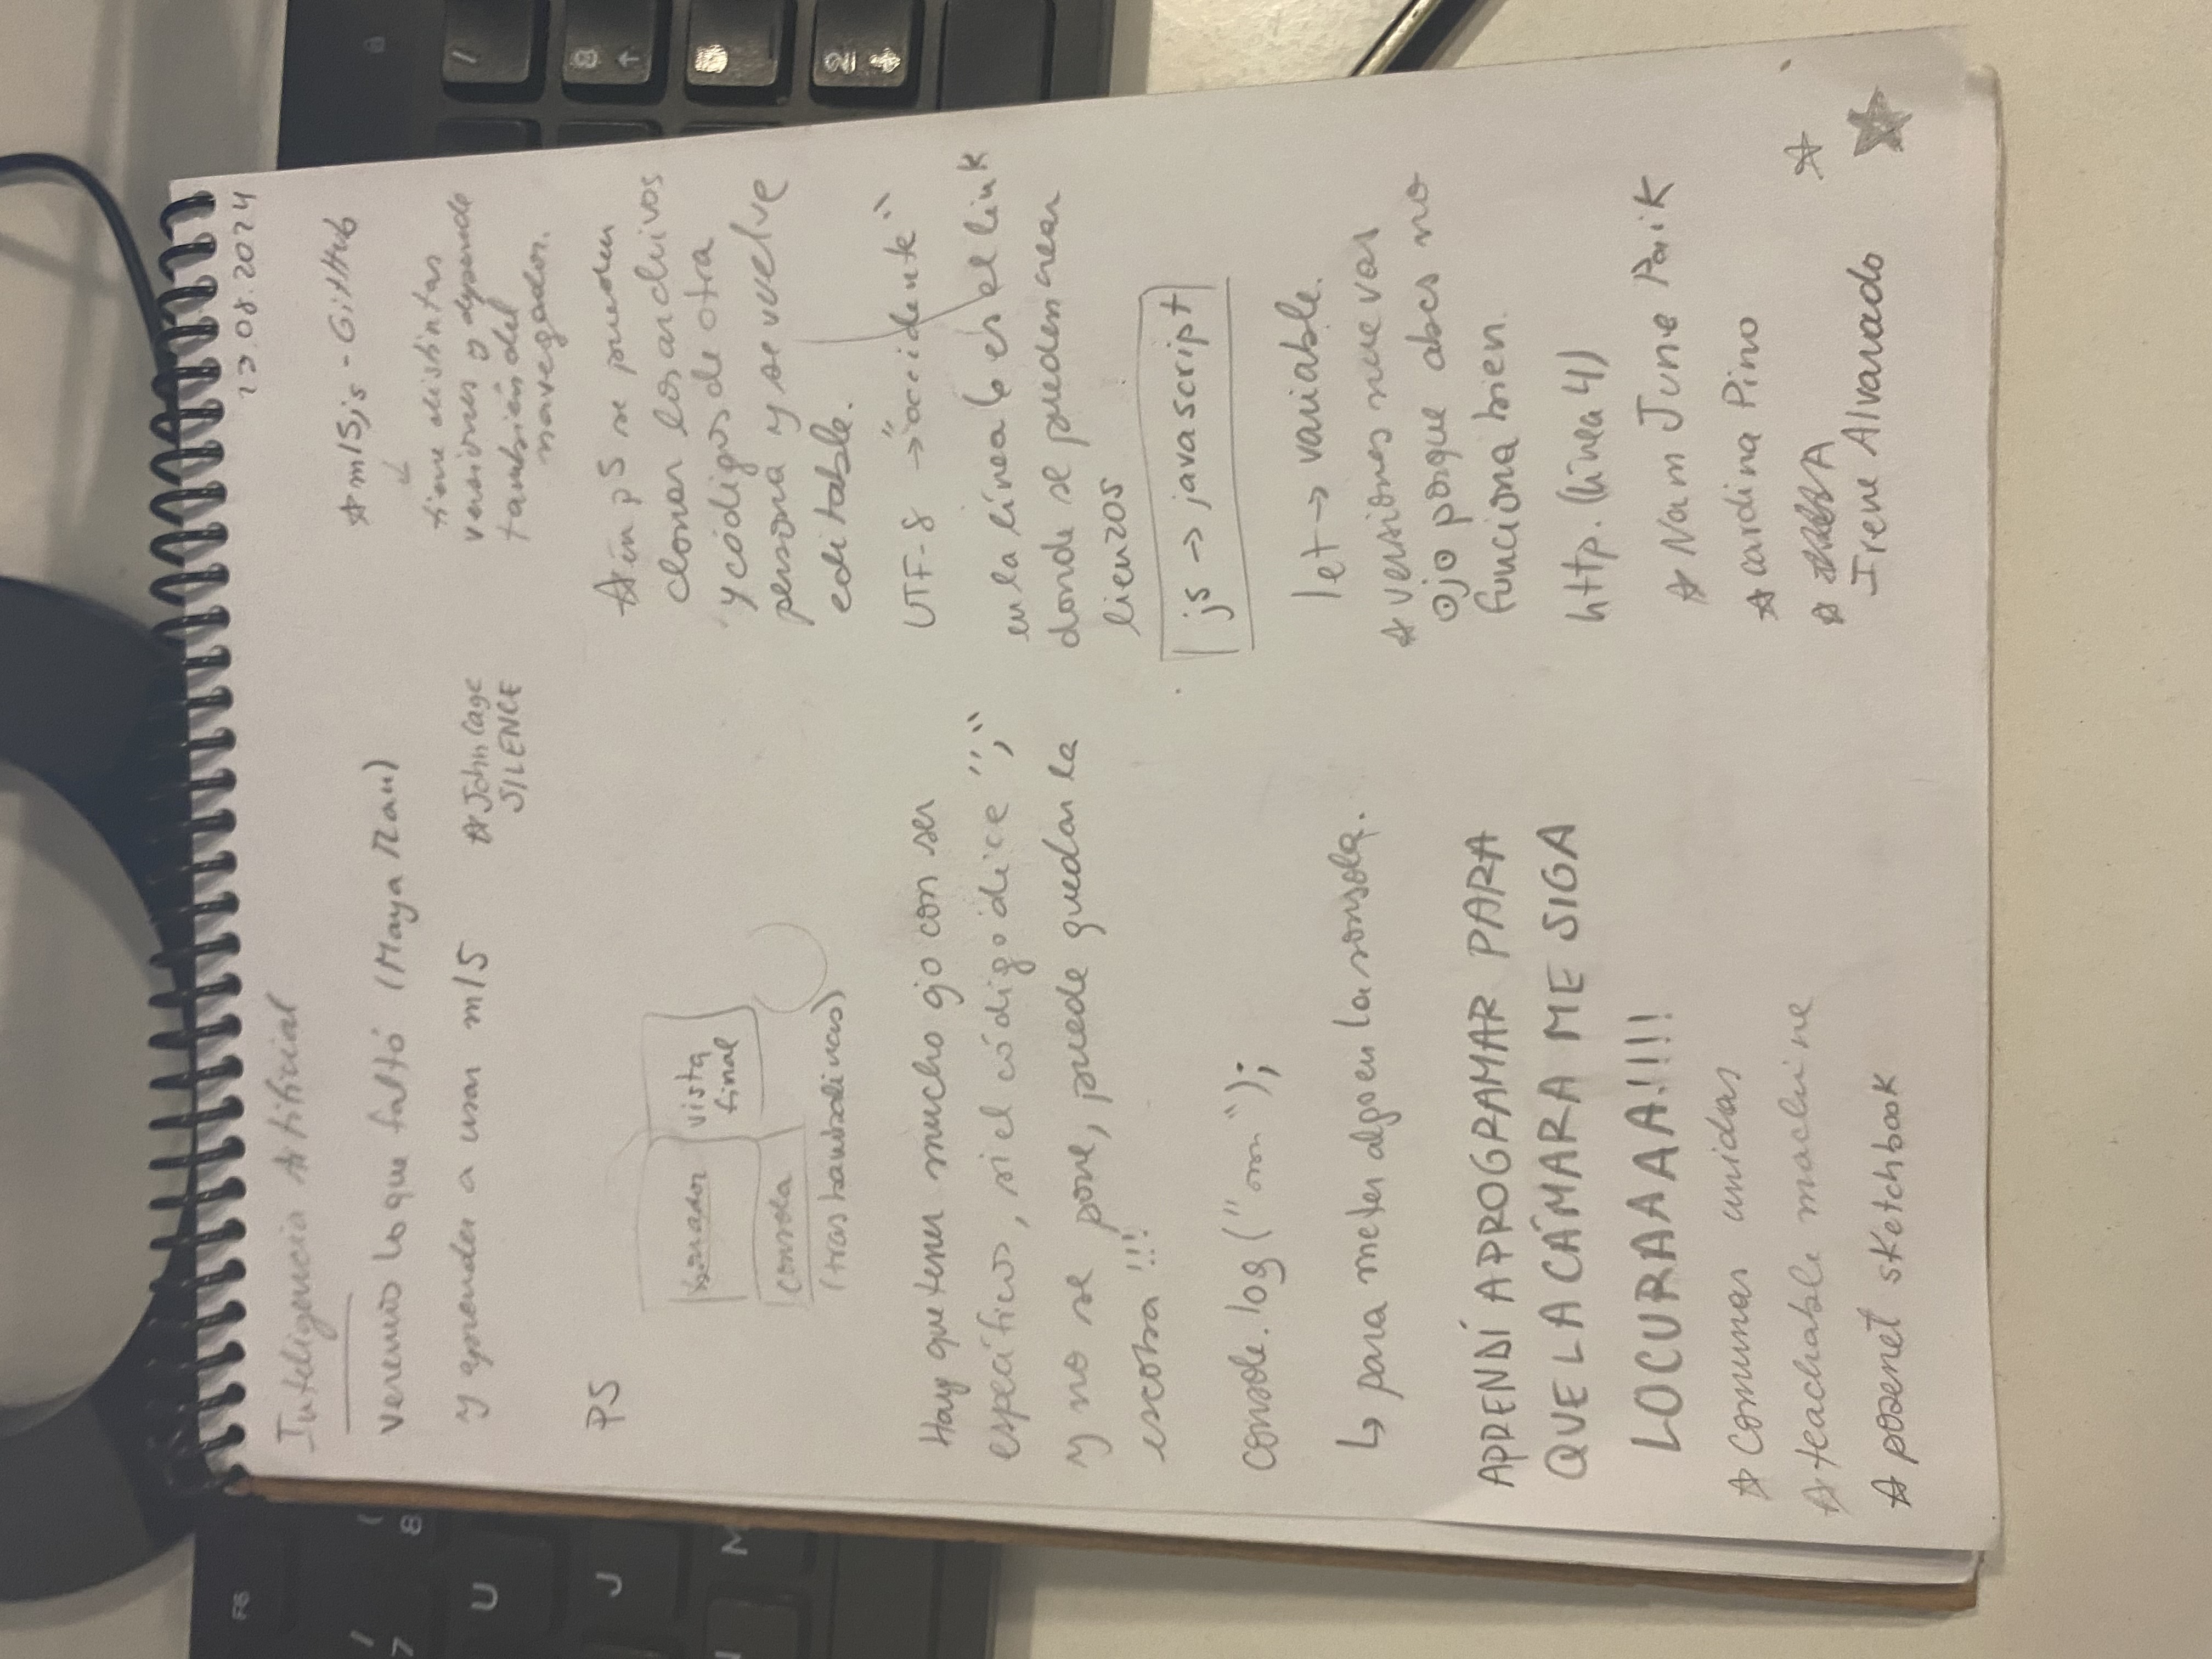 13.08.2024
Inteligencia Artificial
veremos lo que faltó (Maya Man)
y aprender a usar ml5
☆ John Cage
SILENCE
☆ ml5js - GitHub
↓
tiene distintas
versiones y depende
también del
navegador.
P5
borrador
vista
final
consola
(tras bambalinas)
Hay que tener mucho ojo con ser
específicos, si el código dice ";"
y no se pone, puede quedar la
escoba !!!
console.log (" ");
↳ para meter algo en la consola.
APRENDÍ A PROGRAMAR PARA
QUE LA CÁMARA ME SIGA
LOCURAAAA!!!!
☆ comunas unidas
☆ teachable machine
☆ posenet sketchbook
☆ en p5 se pueden
clonar los archivos
y códigos de otra
persona y se vuelve
editable.
UTF-8 → "occidente"
en la línea 6 es el link
donde se pueden crear
lienzos
js → javascript
let → variable.
☆ versiones nuevas
ojo porque no
funciona bien.
http. (línea 4)
☆ Nam June Paik
☆ Carolina Pino
☆ A
Irene Alvarado
F6
7
8
U
J
N
M
/
8
↑
2
↓